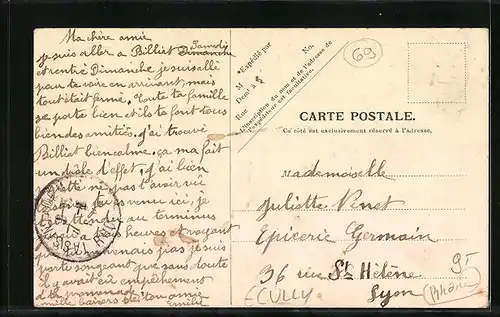 Ma chère amie
je suis aller a Billiat Dimanche Samedi
et rentré Dimanche je suis allé
pour te voire en arrivant mais
tout était fermé, toute ta famille
se porte bien et ils te font tous
bien des amitiés, j'ai trouvé
Billiat bien calme, ça ma fait
un drôle d'effet, j'ai bien
regreté de ne pas t'avoir vu
venu ici, je
attendu au terminus
heures et voyant
venais pas je suis
parti songeant que sans doute
il y avait eu empêchement
a la promenade,
mille baisers de ton amie
Emilie
Expédié par
M
Demt à
Rue
No.
L'inscription du nom et de l'adresse de
l'expéditeur est facultative.
69
CARTE POSTALE.
Ce côté est exclusivement réservé à l'adresse.
Mademoiselle
Juliette Vinet
Epicerie Germain
36 rue St Hélène
Lyon
ECULLY
9-
(Rhône)